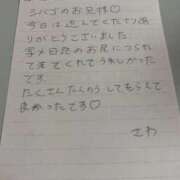 シバゴのお兄様♡
今日は遊んでくださりあ
りがとうございました
写メ日記のお尻につられ
て来てくれてうれしかった
です
たくさんたんのうしてもらえて
良かったです♡
さわ